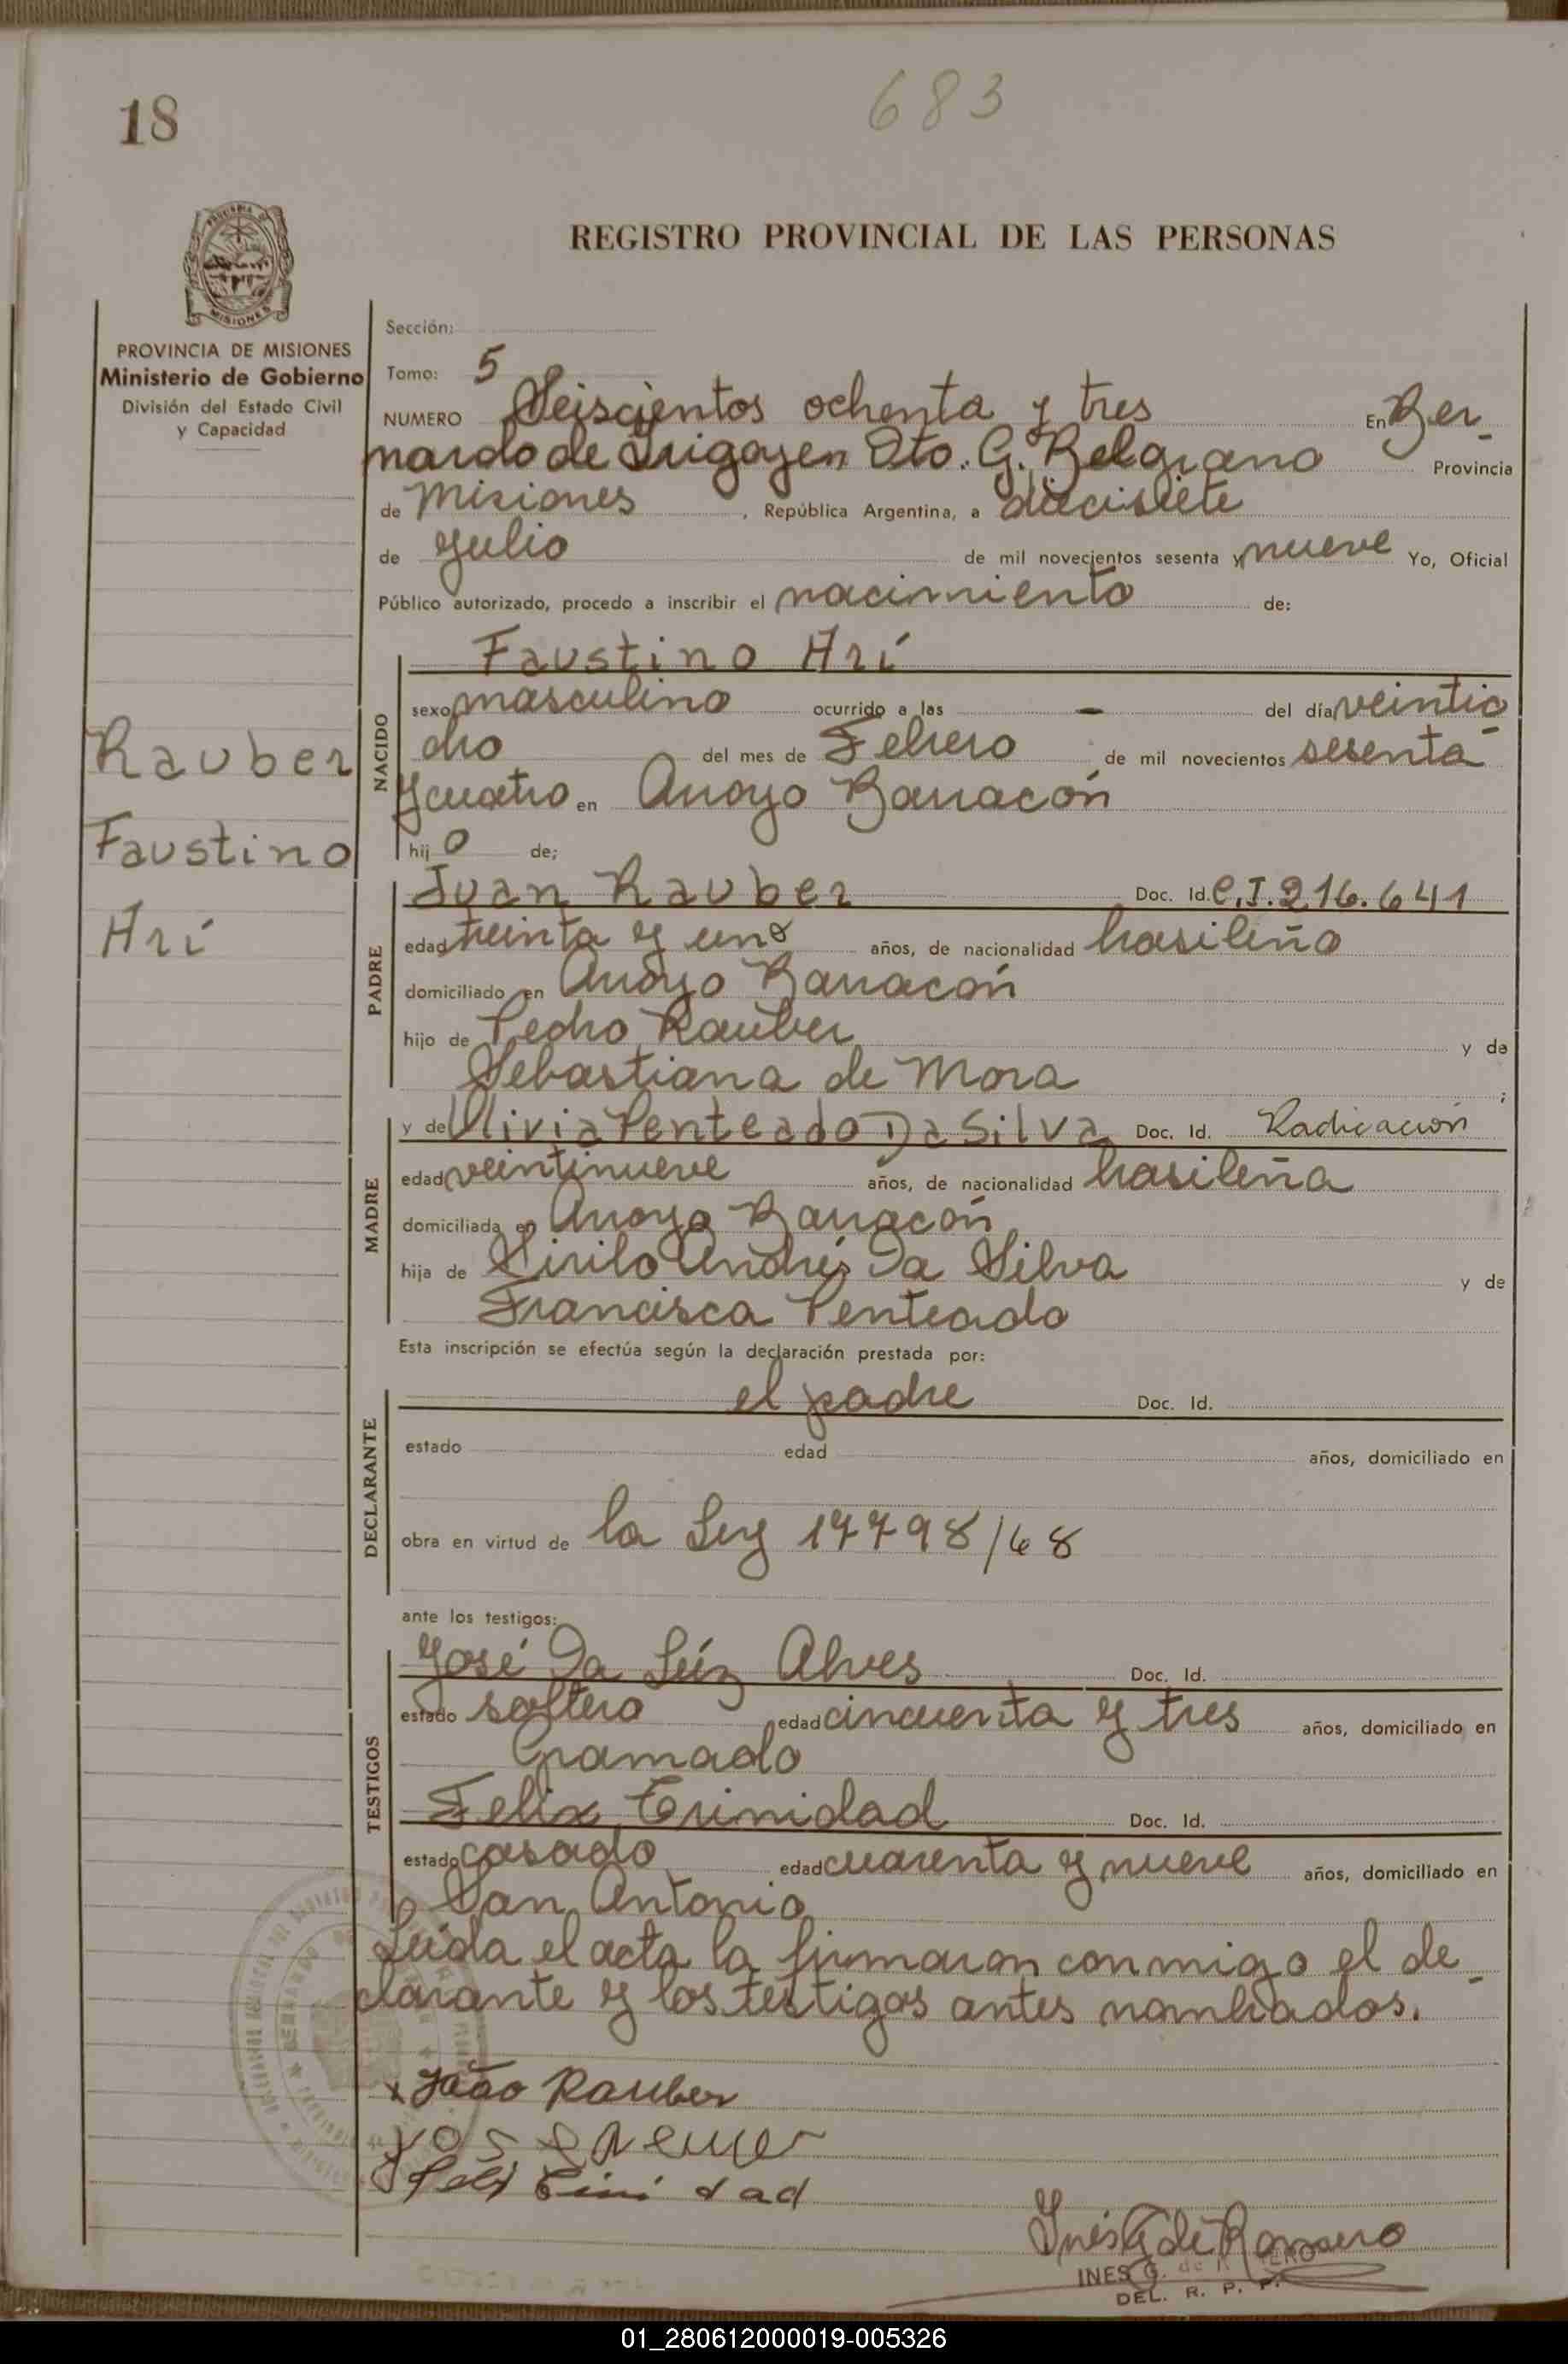 18
683
REGISTRO PROVINCIAL DE LAS PERSONAS
MISIONES
PROVINCIA DE MISIONES
Ministerio de Gobierno
División del Estado Civil
y Capacidad
Rauber
Faustino
Arí
Sección:
Tomo: 5
NUMERO Seiscientos ochenta y tres En Ber-
nardo de Irigoyen Dto. G. Belgrano Provincia
de Misiones, República Argentina, a diecisiete
de Julio de mil novecientos sesenta y nueve Yo, Oficial
Público autorizado, procedo a inscribir el nacimiento de:
NACIDO
Faustino Arí
sexo masculino ocurrido a las - del día veintio-
cho del mes de Febrero de mil novecientos sesenta
y cuatro en Arroyo Barracón
hijo de;
PADRE
Juan Rauber Doc. Id. C.I. 216.641
edad treinta y uno años, de nacionalidad brasileño
domiciliado en Arroyo Barracón
hijo de Pedro Rauber y de
Sebastiana de Mora ;
MADRE
y de Olivia Penteado Da Silva Doc. Id. Radicación
edad veintinueve años, de nacionalidad brasileña
domiciliada en Arroyo Barracón
hija de Sirilo Andrés Da Silva y de
Francisca Penteado
Esta inscripción se efectúa según la declaración prestada por:
DECLARANTE
el padre Doc. Id.
estado edad años, domiciliado en
obra en virtud de la Ley 17798/68
ante los testigos:
TESTIGOS
José Da Lúz Alves Doc. Id.
estado soltero edad cincuenta y tres años, domiciliado en
Gramado
Felix Trinidad Doc. Id.
estado casado edad cuarenta y nueve años, domiciliado en
San Antonio
Leida el acta la firmaron conmigo el de-
clarante y los testigos antes nombrados.
x João Rauber
Inés G de Romero
INES G. de ROMERO
DEL. R. P. P.
01_280612000019-005326